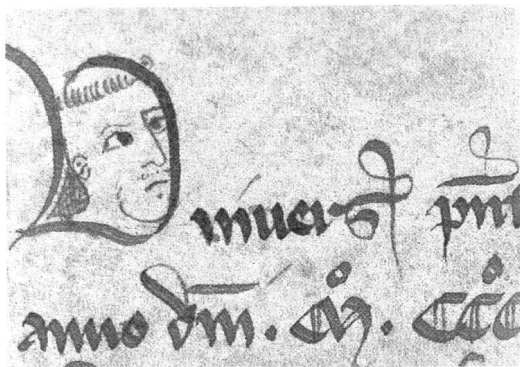 Uniuersꝭ pn̄t
anno dn̄i. Mͦ. CCͦC